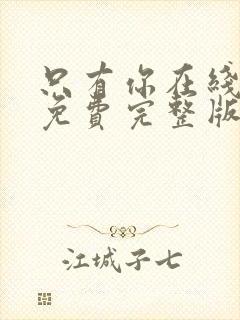 只有你在线
免费完整版
江城子七